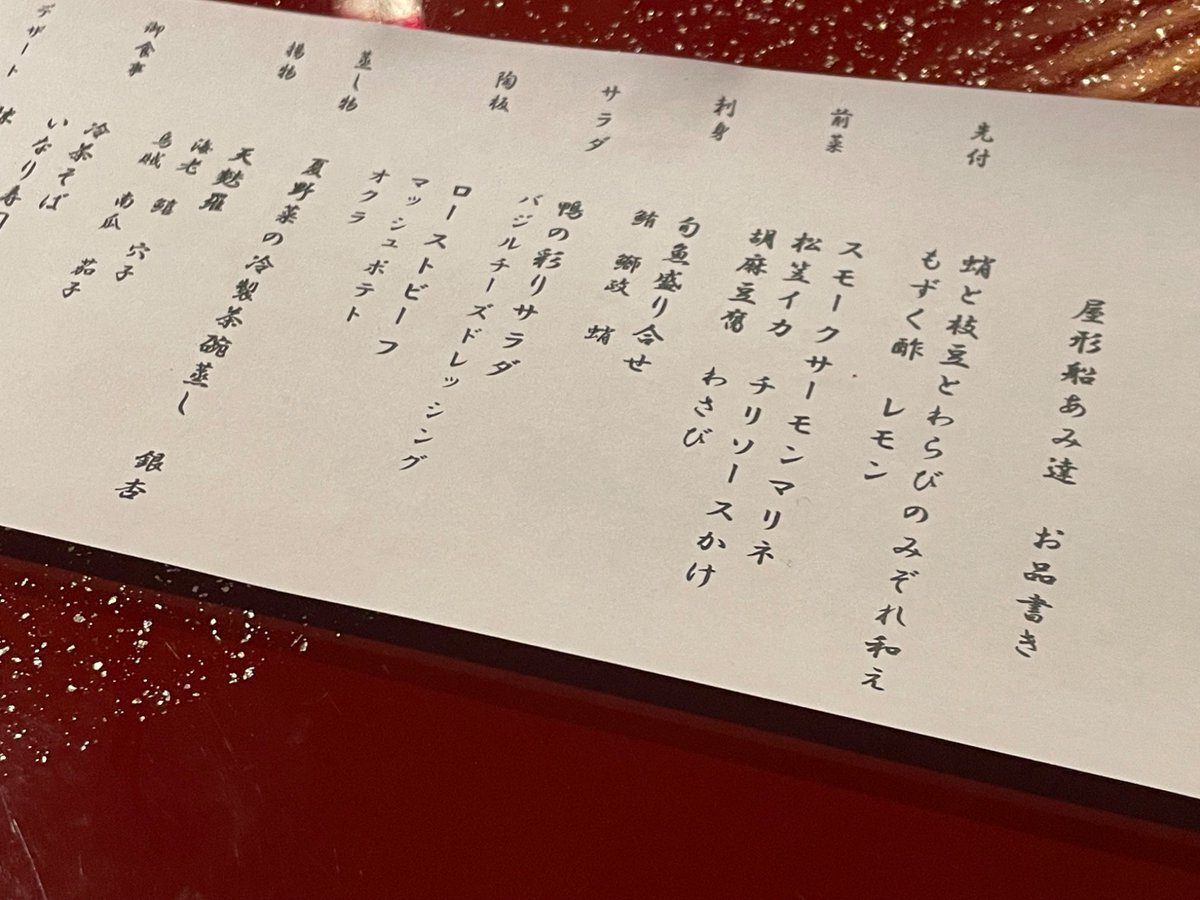 屋形船あみ達　お品書き
先付
蛸と枝豆とわらびのみぞれ和え
もずく酢　レモン
前菜
スモークサーモンマリネ
松笠イカ　チリソースかけ
胡麻豆腐　わさび
刺身
旬魚盛り合せ
鮪　鰤政　蛸
サラダ
鴨の彩りサラダ
バジルチーズドレッシング
陶板
ローストビーフ
マッシュポテト
オクラ
蒸し物
夏野菜の冷製茶碗蒸し　銀杏
揚物
天麩羅
海老　鱚　穴子
烏賊　南瓜　茄子
御食事
冷茶そば
いなり寿司
デザート